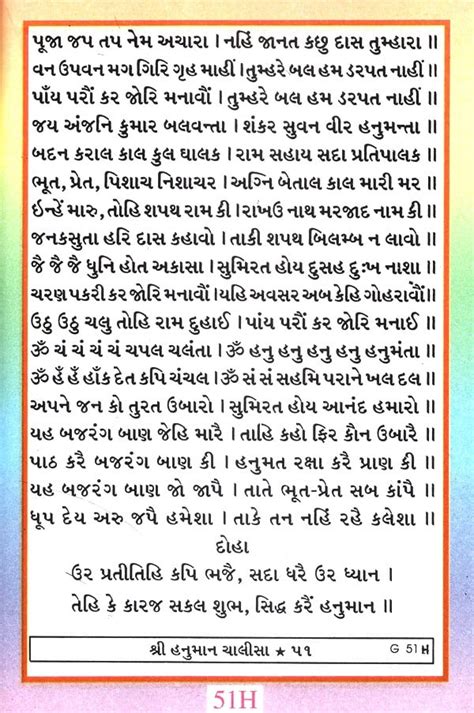 પૂજા જપ તપ નેમ અચારા । નહિં જાનત કછુ દાસ તુમ્હારા ॥
વન ઉપવન મગ ગિરિ ગૃહ માહીં । તુમ્હરે બલ હમ ડરપત નાહીં ॥
પાઁય પરૌં કર જોરિ મનાવૌં । તુમ્હરે બલ હમ ડરપત નાહીં ॥
જય અંજનિ કુમાર બલવન્તા । શંકર સુવન વીર હનુમન્તા ॥
બદન કરાલ કાલ કુલ ઘાલક । રામ સહાય સદા પ્રતિપાલક ॥
ભૂત, પ્રેત, પિશાચ નિશાચર । અગ્નિ બેતાલ કાલ મારી મર ॥
ઇન્હેં મારુ, તોહિ શપથ રામ કી । રાખઉ નાથ મરજાદ નામ કી ॥
જનકસુતા હરિ દાસ કહાવો । તાકી શપથ બિલમ્બ ન લાવો ॥
જૈ જૈ જૈ ધુનિ હોત અકાસા । સુમિરત હોય દુસહ દુઃખ નાશા ॥
ચરણ પકરી કર જોરિ મનાવૌં । યહિ અવસર અબ કેહિ ગોહરાવૌં ॥
ઉઠુ ઉઠુ ચલુ તોહિ રામ દુહાઈ । પાંય પરૌં કર જોરિ મનાઈ ॥
ૐ ચં ચં ચં ચં ચપલ ચલંતા । ૐ હનુ હનુ હનુ હનુ હનુમંતા ॥
ૐ હઁ હઁ હાઁક દેત કપિ ચંચલ । ૐ સં સં સહમિ પરાને ખલ દલ ॥
અપને જન કો તુરત ઉબારો । સુમિરત હોય આનંદ હમારો ॥
યહ બજરંગ બાણ જેહિ મારૈ । તાહિ કહો ફિર કૌન ઉબારૈ ॥
પાઠ કરૈ બજરંગ બાણ કી । હનુમત રક્ષા કરૈ પ્રાણ કી ॥
યહ બજરંગ બાણ જો જાપૈ । તાતે ભૂત-પ્રેત સબ કાંપૈ ॥
ધૂપ દેય અરુ જપૈ હમેશા । તાકે તન નહિં રહૈ કલેશા ॥
દોહા
ઉર પ્રતીતિહિ કપિ ભજૈ, સદા ધરૈ ઉર ધ્યાન ।
તેહિ કે કારજ સકલ શુભ, સિદ્ધ કરૈં હનુમાન ॥
શ્રી હનુમાન ચાલીસા ★ ૫૧ G 51 H
51H